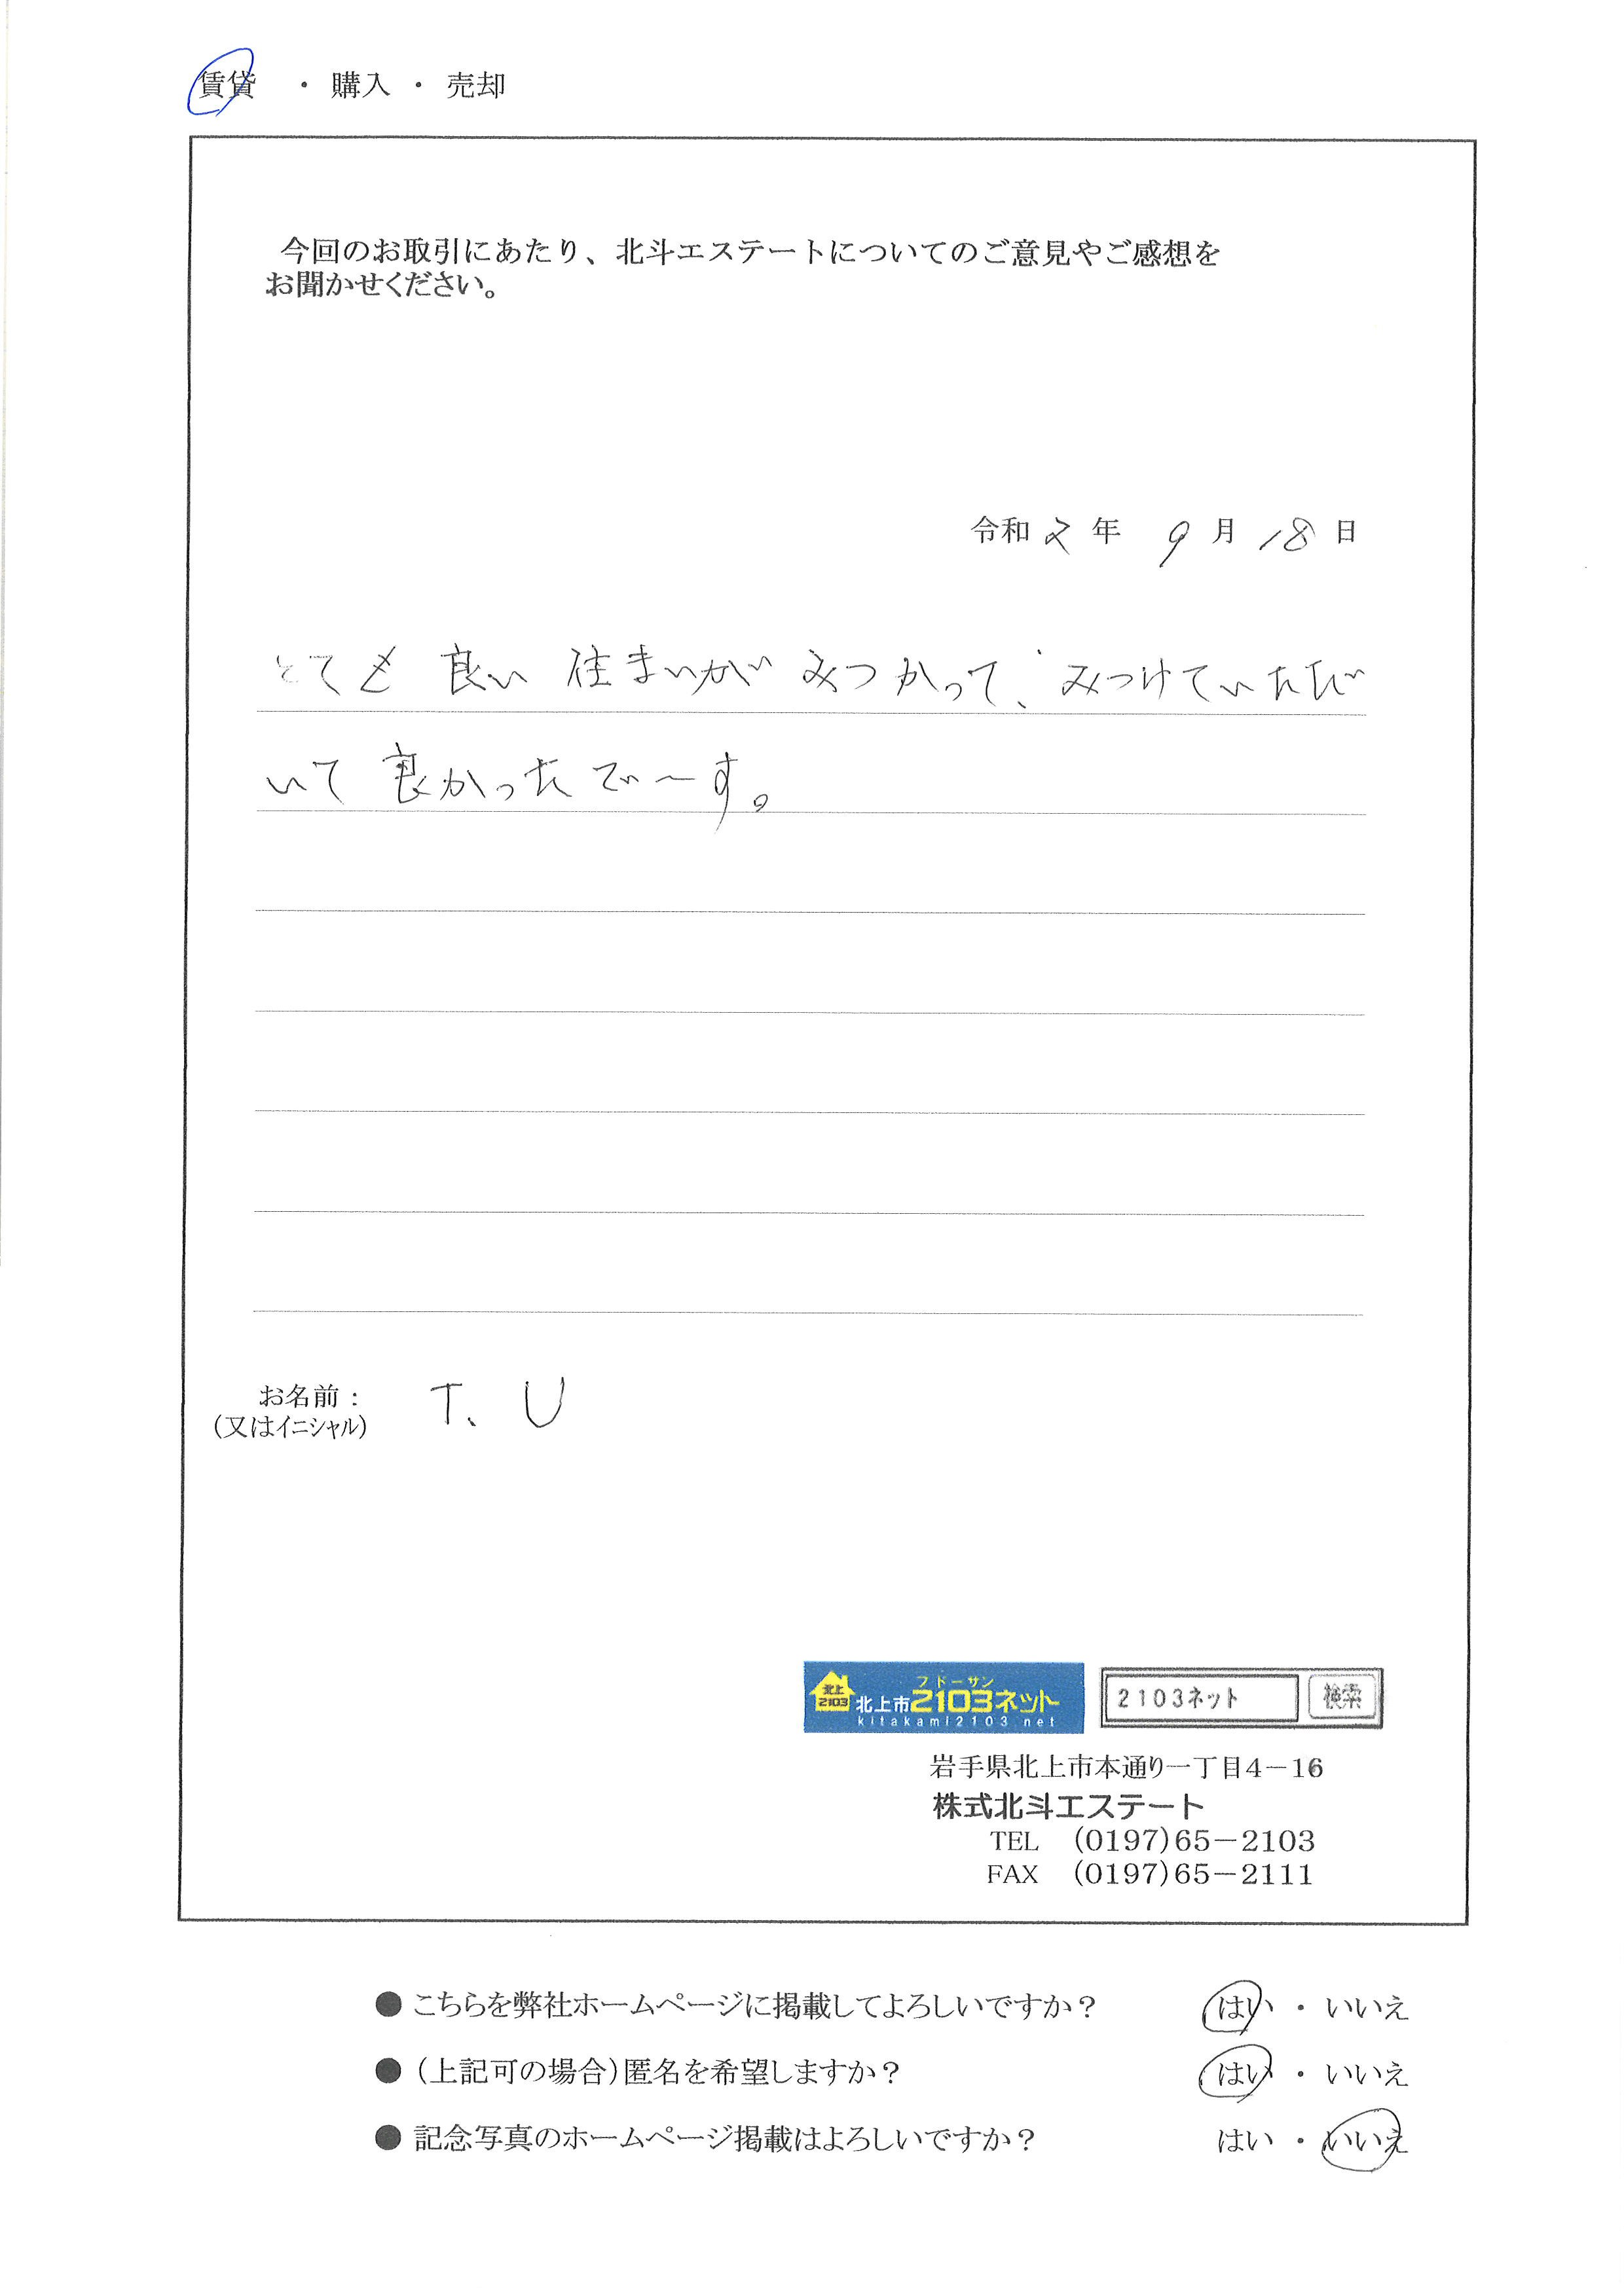 賃貸 ・ 購入 ・ 売却
今回のお取引にあたり、北斗エステートについてのご意見やご感想を
お聞かせください。
令和 2 年 9 月 18 日
とても 良い 住まいが みつかって、みつけていただ
いて 良かったで〜す。
お名前： T、U
（又はイニシャル）
フドーサン
北上
2103
北上市2103ネット
kitakami2103.net
2103ネット 検索
岩手県北上市本通り一丁目4－16
株式北斗エステート
TEL （0197）65－2103
FAX （0197）65－2111
●こちらを弊社ホームページに掲載してよろしいですか？ はい ・ いいえ
●（上記可の場合）匿名を希望しますか？ はい ・ いいえ
●記念写真のホームページ掲載はよろしいですか？ はい ・ いいえ